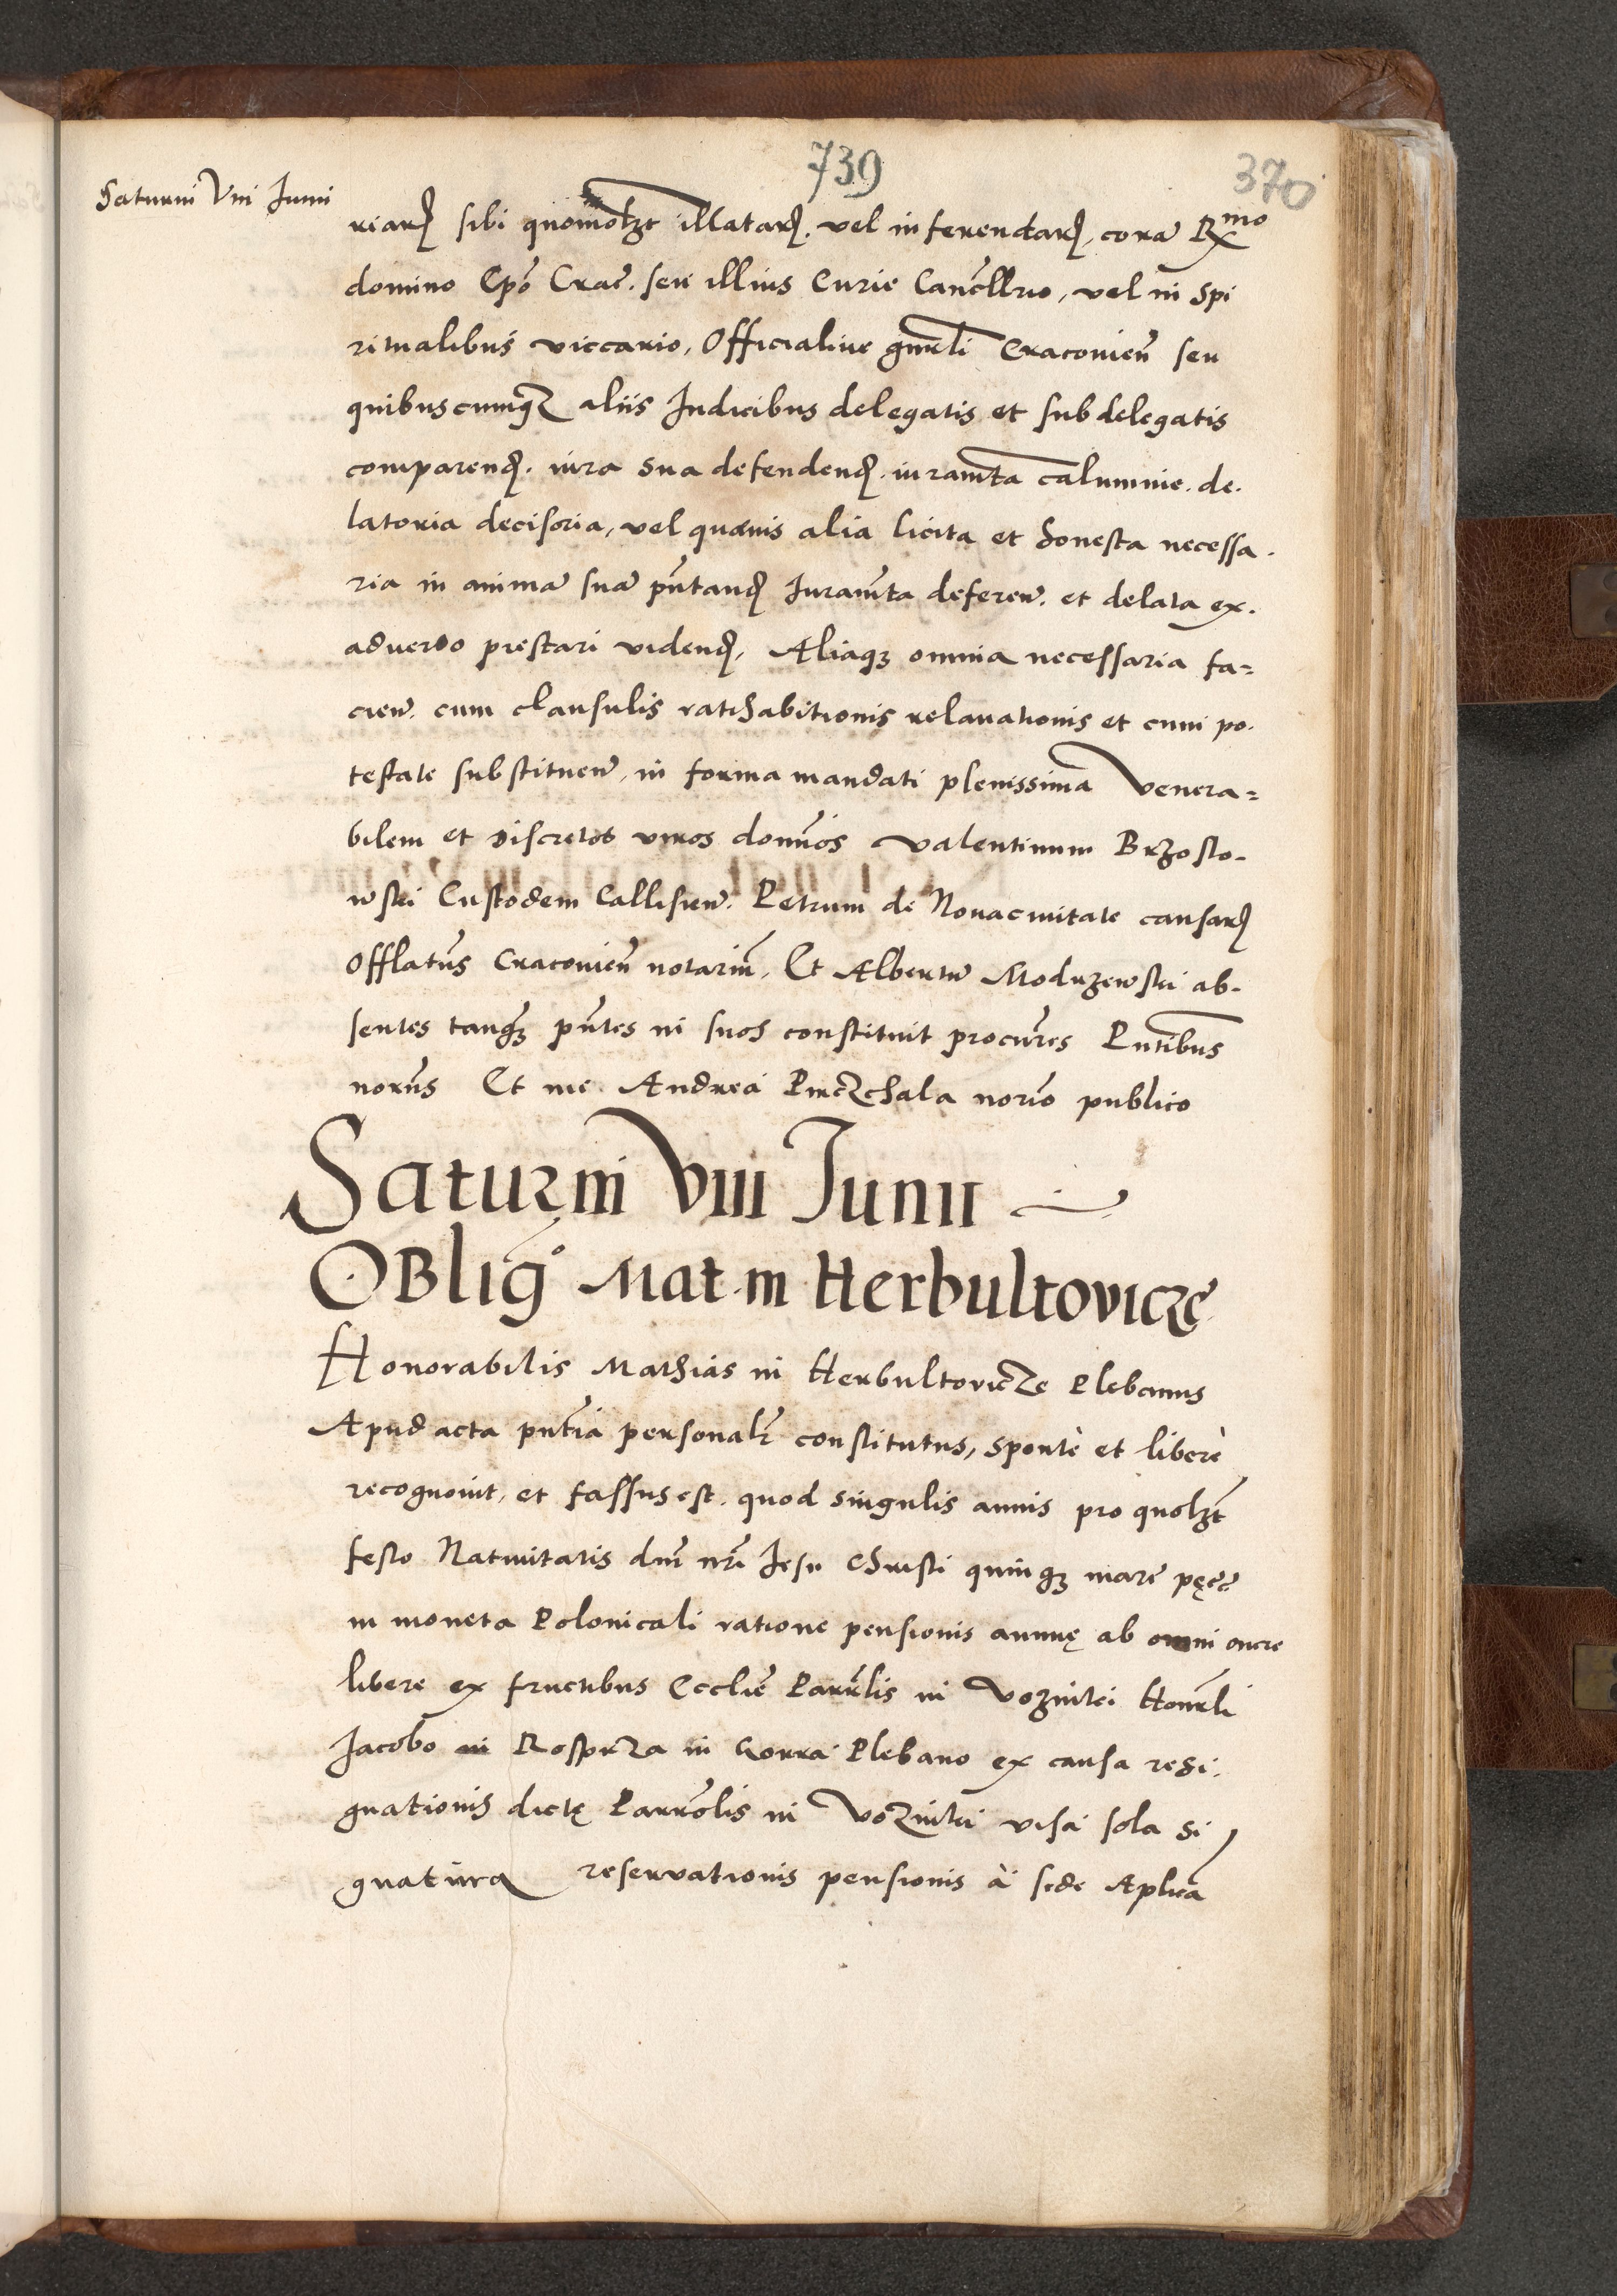 739
370
Saturni Viii Junii
riarꝝ sibi quomōlzt illatarꝝ. vel inferendarꝝ, corā Rmo
domino Epō Crac̄. seu illius Curie Cancēllrio, vel in Spi
ritualibus viccario, Officialiue gnr̄li Craconien̄ seu
quibuscumqꝫ aliis Judicibus delegatis et subdelegatis
comparenꝺ. iura sua defendenꝺ. iuramt̄a calumnie. de.
latoria decisoria, vel quævis alia licita et honesta necessa.
ria in animā suā pn̄tanꝺ Juramt̄a deferen̄. et delata ex.
aduerso prestari videnꝺ, Aliaqꝫ omnia necessaria fa=
cien̄. cum clausulis ratihabitionis relauationis et cum po.
testate substituen̄, in forma mandati plenissima Venera=
bilem et Discretos viros domn̄os Valentinum Brzosto.
wski Custodem Callisien̄. Petrum de Nouaciuitate causarꝝ
Offlatus̄ Craconien̄ notariu̅, Et Albertū Modrzewski ab.
sentes tanqꝫ pn̄tes in suos constituit procur̄es Pn̄tibus
norus̄ Et me Andrea Pirczchala norio̅ publico
Saturni VIII Junii
Oblig° Mat. in Herbultovicze
Honorabilis Mathias in Herbultovicze Plebanus
Apud acta pn̄tia personalr̄ constitutus, sponte et libere
recognouit, et fassus est. quod singulis annis pro quolzt̄
festo Natiuitatis dn̄i nr̄i Jesu Christi quinqꝫ marc̄ pec̄c̄
in moneta Polonicali ratione pensionis annuę ab omni onere
libere ex fructibus Ecclie̅ Parrlis̄ in Voznilei Honrl̄i
Jacobo in Rosprza in Gorra Plebano ex causa resi.
gnationis dictę Parrolis̄ in Voznilei visa sola si
gnatura reservationis pensionis à sede Aplica̅